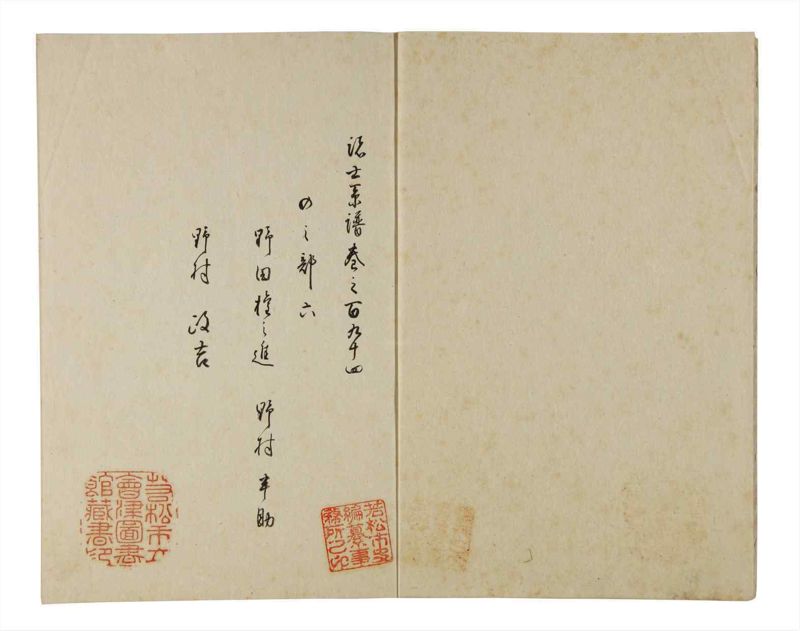 諸士系譜巻之百九十四
のゝ部六
野田権之進　野村半助
野村政吉
若松市史
編纂事
務所之印
若松市立
會津圖書
館藏書印